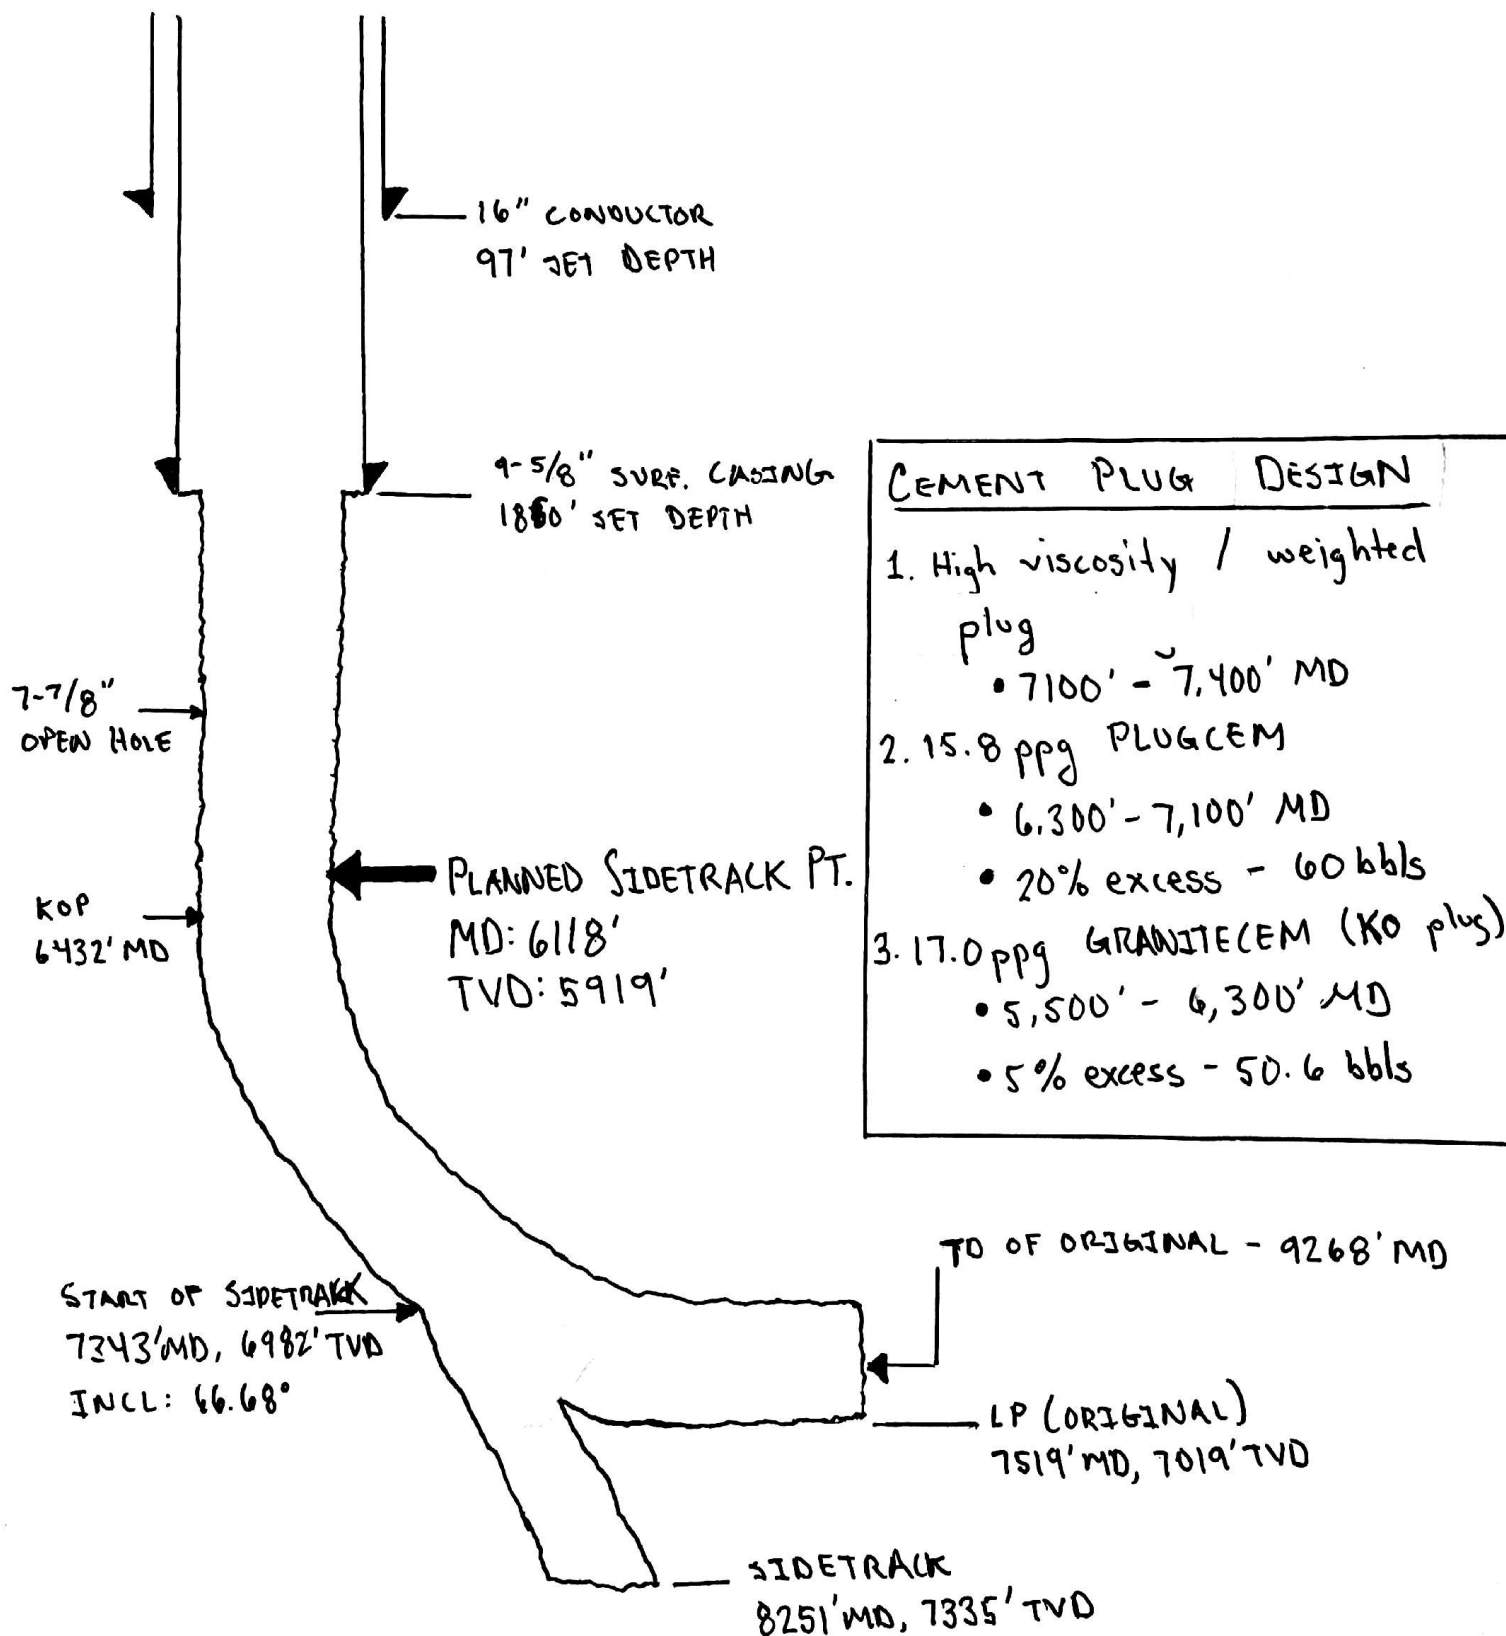 16" CONDUCTOR
97' SET DEPTH
9-5/8" SURF. CASING
SET DEPTH
7-7/8"
OPEN HOLE
PLANNED SIDETRACK PT.
MD: 6118'
TVD: 5919'
KOP
6432' MD
CEMENT PLUG DESIGN
1. High viscosity / weighted
plug
• 7100' - 7,400' MD
2. 15.8 ppg PLUGCEM
• 6,300' - 7,100' MD
• 20% excess - 60 bbls
3. 17.0 ppg GRANITECEM (KO plug)
• 5,500' - 6,300' MD
• 5% excess - 50.6 bbls
START OF SIDETRACK
7343' MD, 6982' TVD
INCL: 66.68°
TD OF ORIGINAL - 9268' MD
LP (ORIGINAL)
7519' MD, 7019' TVD
SIDETRACK
8251' MD, 7335' TVD